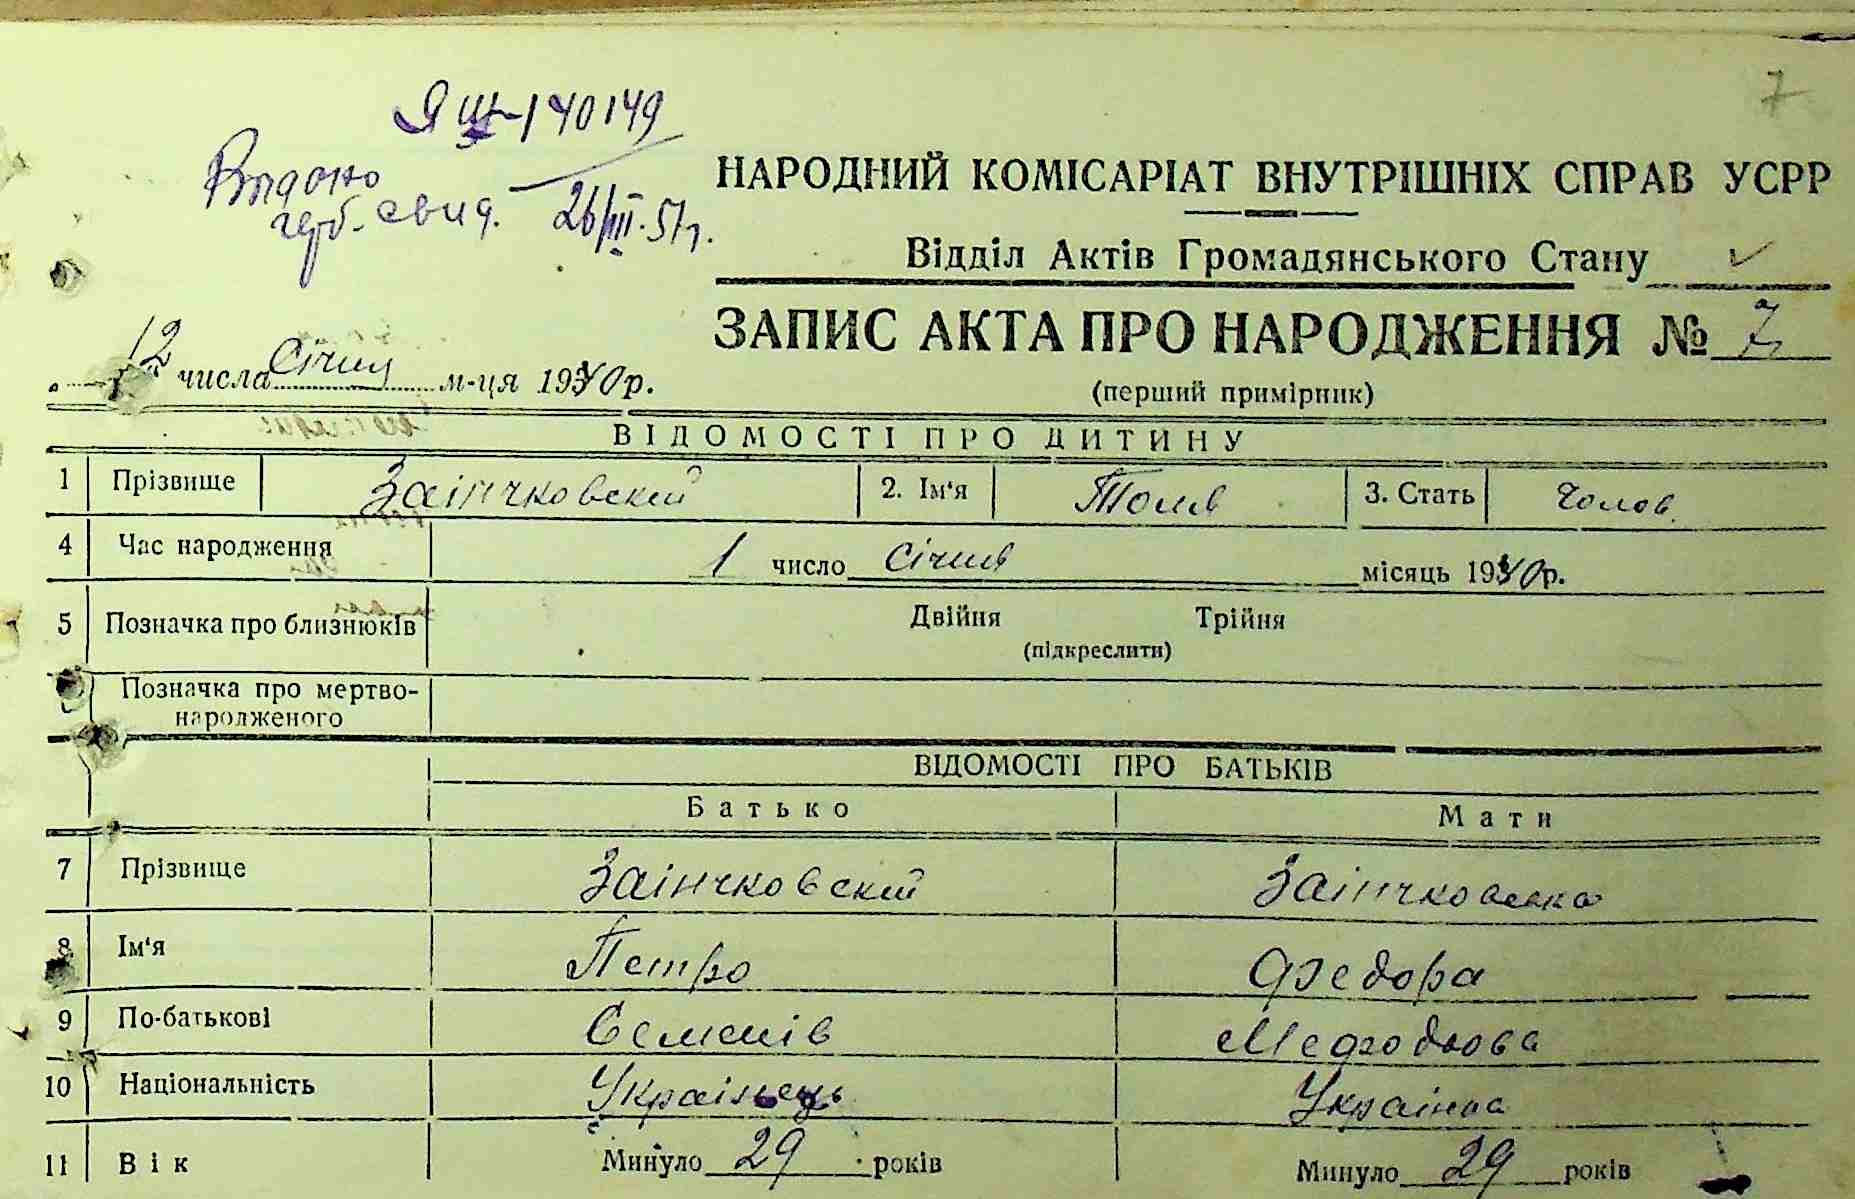 7
Я Ш-140149
Видано
герб. свид. 26/III.51г.
НАРОДНИЙ КОМІСАРІАТ ВНУТРІШНІХ СПРАВ УСРР
Відділ Актів Громадянського Стану
ЗАПИС АКТА ПРО НАРОДЖЕННЯ № 7
12 числа Січня м-ця 1940р.
(перший примірник)
ВІДОМОСТІ ПРО ДИТИНУ
1 Прізвище Заінчковский 2. Ім'я Толя 3. Стать Чолов.
4 Час народження 1 число Січня місяць 1940р.
5 Позначка про близнюків Двійня Трійня
(підкреслити)
Позначка про мертво-
народженого
ВІДОМОСТІ ПРО БАТЬКІВ
Батько Мати
7 Прізвище Заінчковский Заінчковска
8 Ім'я Петро Федора
9 По-батькові Семенів Мефодьова
10 Національність Українець Українка
11 Вік Минуло 29 років Минуло 29 років